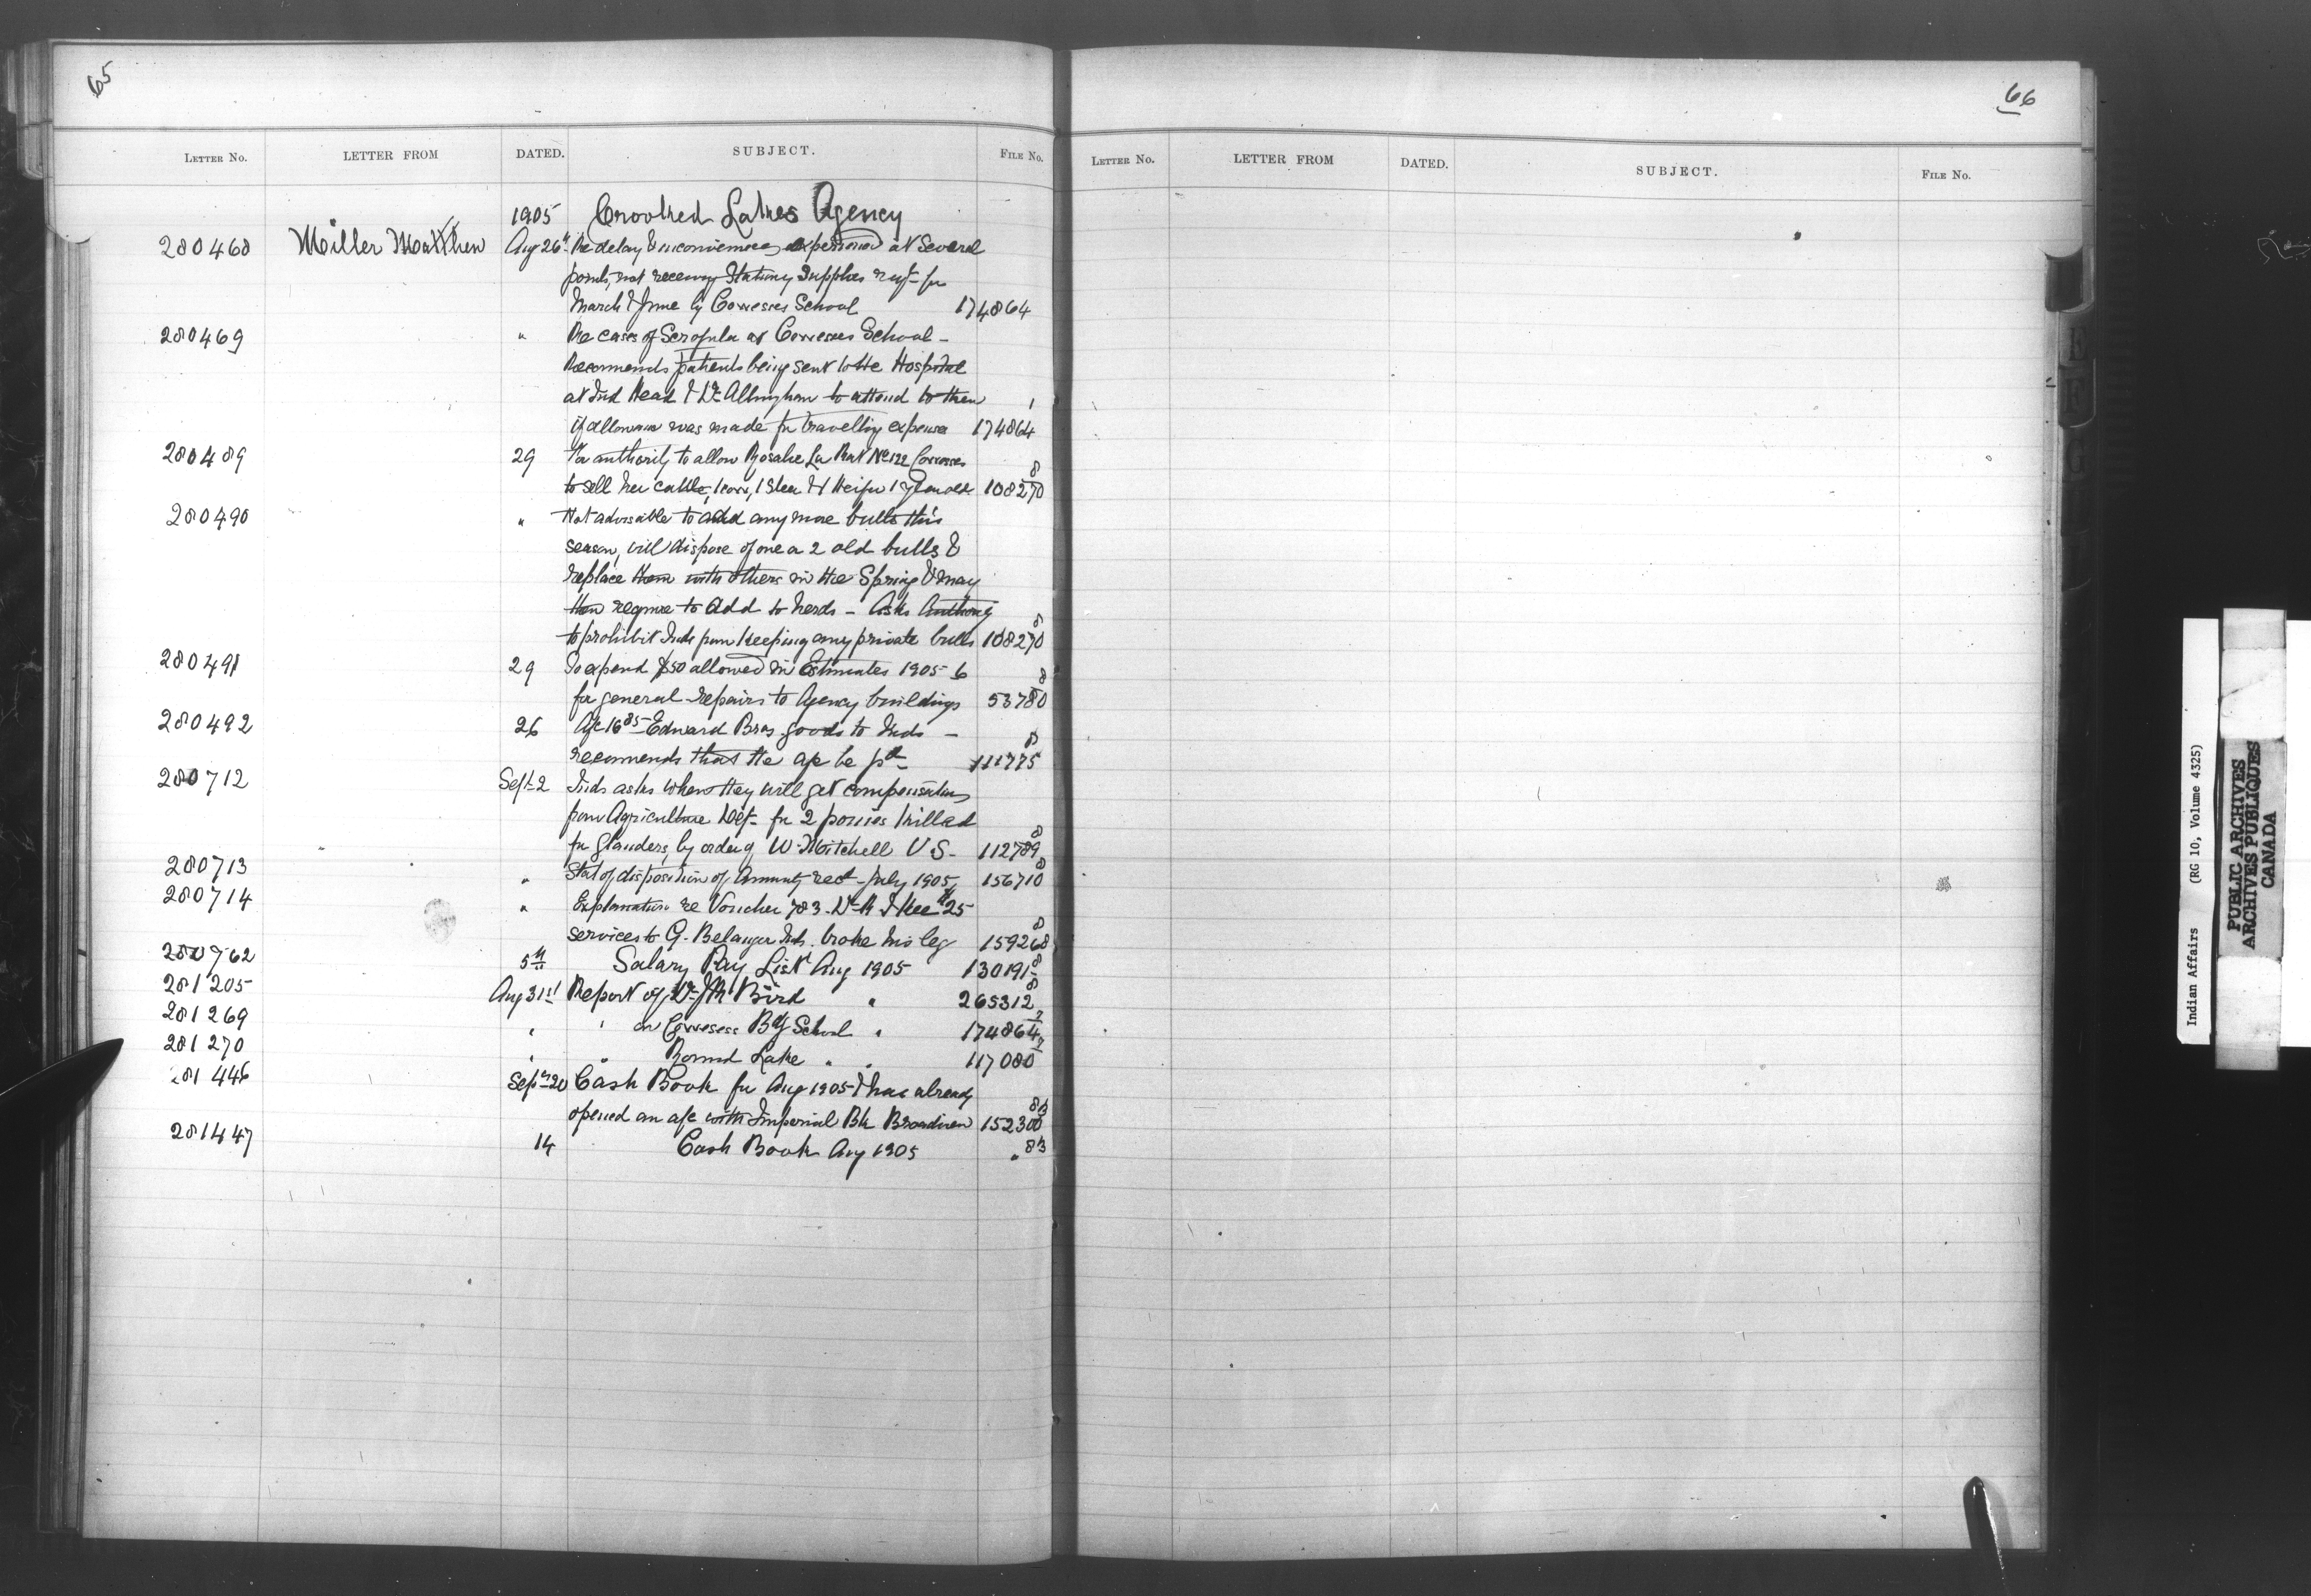 65
LETTER No. LETTER FROM DATED. SUBJECT. FILE No.
1905 Crooked Lakes Agency
280468 Miller Matthew Aug 26th Re delay & inconvenience experienced at Several
points, not receiving Stationery Supplies reqt for
March & June by Cowesses School 174864
280469 " Re cases of Scrofula at Cowesses School -
Recommends patients being sent to the Hospital
at Ind Head & Dr Allingham to attend to them
if allowance was made for travelling expenses 174864 1
280489 29 For authority to allow Rosalie La Rat No 122 Cowesses
to sell her cattle, 1 cow, 1 Steer & 1 Heifer 1 year old 108270 8
280490 " Not advisable to add any more bulls this
season, will dispose of one or 2 old bulls &
replace them with others in the Spring & may
then require to add to herds - Asks Authority
to prohibit Inds from keeping any private bulls 108270 8
280491 29 To expend $50 allowed in Estimates 1905-6
for general repairs to Agency buildings 53780 8
280492 26 A/c 16 85 Edward Bros goods to Inds -
recommends that the a/c be pd 111775 8
280712 Sept 2 Inds asks when they will get compensation
from Agriculture Dept for 2 ponies killed
for glanders, by order of W. Mitchell V S - 112789 8
280713 " Stat of disposition of Annuity rect July 1905 156710 8
280714 " Explanation re Voucher 783. Dr $25
services to G. Belanger Inds. broke his leg 159268 8
280762 5th Salary Pay List Aug 1905 130191 8
281205 Aug 31st Report of Dr J R Bird " 265312 8
281269 " " on Cowesess Bdg School " 174864 2
281270 " " Round Lake " " 117080 2
281446 Sept 20 Cash Book for Aug 1905 & has already
opened an a/c with Imperial Bk Broadview 152300 83
281447 14 Cash Book Aug 1905 " 83
66
LETTER No. LETTER FROM DATED. SUBJECT. FILE No.
E
F
G
Indian Affairs (RG 10, Volume 4325)
PUBLIC ARCHIVES
ARCHIVES PUBLIQUES
CANADA